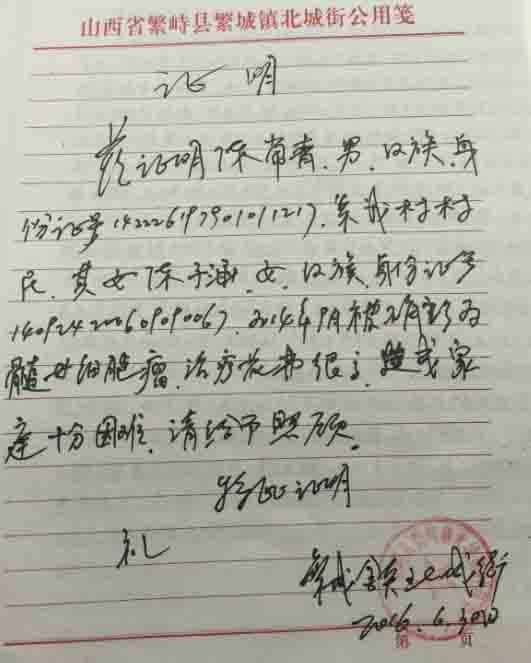 山西省繁峙县繁城镇北城街公用笺
证明
兹证明陈常青.男.汉族.身
份证号142226197901011217.系我村村
民.其女陈子涵.女.汉族.身份证号
140924200609090067.2014年9月被确诊为
髓母细胞瘤.治疗花费很高.造成家
庭十分困难.请给予照顾.
特此证明
礼
繁城镇北城街
2016.6.30日
第 页